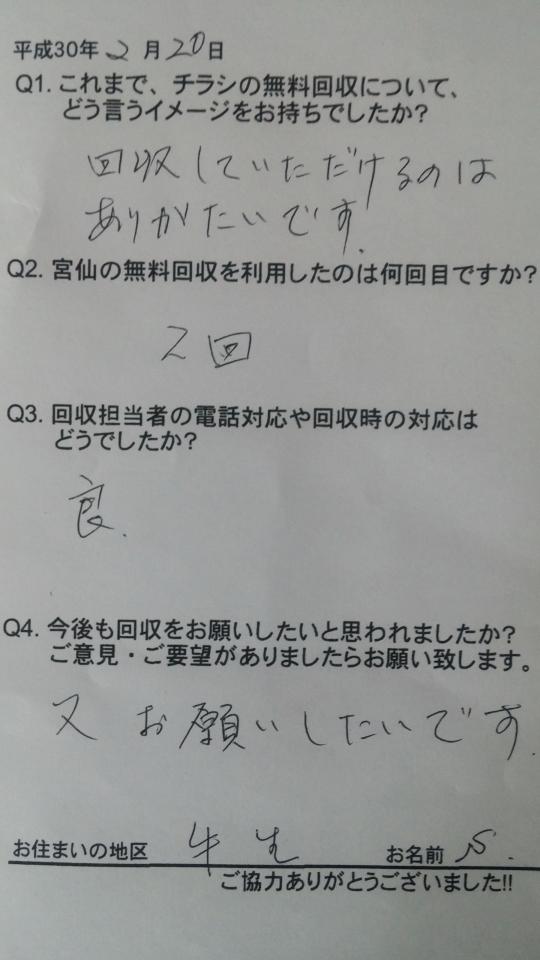 平成30年 2 月 20 日
Q1. これまで、チラシの無料回収について、
どう言うイメージをお持ちでしたか?
回収していただけるのは
ありがたいです.
Q2. 宮仙の無料回収を利用したのは何回目ですか?
2回
Q3. 回収担当者の電話対応や回収時の対応は
どうでしたか?
良.
Q4. 今後も回収をお願いしたいと思われましたか?
ご意見・ご要望がありましたらお願い致します。
又 お願いしたいです.
お住まいの地区 牛生 お名前 S.
ご協力ありがとうございました!!